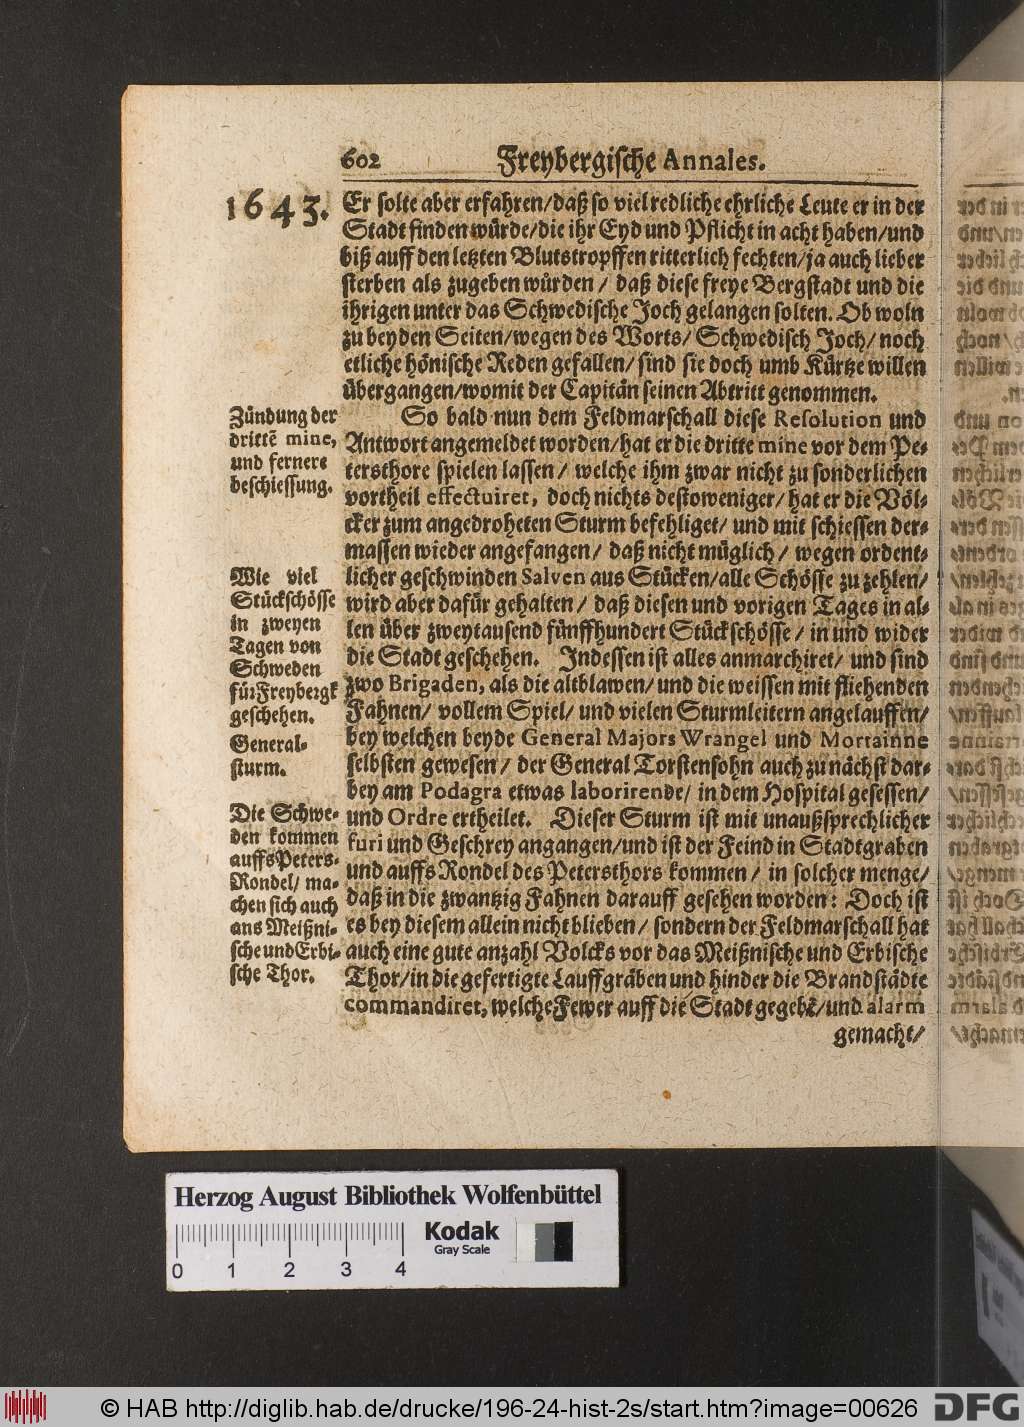 602 Freybergische Annales.
1643.
Er solte aber erfahren/daß so viel redliche ehrliche Leute er in der
Stadt finden würde/die ihr Eyd und Pflicht in acht haben/und
biß auff den letzten Blutstropffen ritterlich fechten/ja auch lieber
sterben als zugeben würden / daß diese freye Bergstadt und die
ihrigen unter das Schwedische Joch gelangen solten. Ob woln
zu beyden Seiten/wegen des Worts/ Schwedisch Joch/ noch
etliche hönische Reden gefallen/ sind sie doch umb Kürtze willen
übergangen/womit der Capitän seinen Abtritt genommen.
Zündung der
drittẽ mine,
und fernere
beschiessung.
So bald nun dem Feldmarschall diese Resolution und
Antwort angemeldet worden/hat er die dritte mine vor dem Pe-
tersthore spielen lassen/ welche ihm zwar nicht zu sonderlichen
vortheil effectuiret, doch nichts destoweniger/ hat er die Völ-
cker zum angedroheten Sturm befehliget/ und mit schiessen der-
massen wieder angefangen/ daß nicht müglich/ wegen ordent-
Wie viel
Stückschösse
in zweyen
Tagen von
Schweden
für Freybergk
geschehen.
licher geschwinden Salven aus Stücken/alle Schösse zu zehlen/
wird aber dafür gehalten/ daß diesen und vorigen Tages in al-
len über zweytausend fünffhundert Stückschösse/ in und wider
die Stadt geschehen. Indessen ist alles anmarchiret/ und sind
zwo Brigaden, als die altblawen/ und die weissen mit fliehenden
Fahnen/ vollem Spiel/ und vielen Sturmleitern angelauffen/
General-
sturm.
bey welchen beyde General Majors Wrangel und Mortainne
selbsten gewesen/ der General Torstensohn auch zu nächst dar-
bey am Podagra etwas laborirende/ in dem Hospital gesessen/
Die Schwe-
den kommen
auffs Peters-
Rondel/ ma-
chen sich auch
ans Meißni-
sche und Erbi-
sche Thor.
und Ordre ertheilet. Dieser Sturm ist mit unaußsprechlicher
furi und Geschrey angangen/und ist der Feind in Stadtgraben
und auffs Rondel des Petersthors kommen/ in solcher menge/
daß in die zwantzig Fahnen darauff gesehen worden: Doch ist
es bey diesem allein nicht blieben/ sondern der Feldmarschall hat
auch eine gute anzahl Volcks vor das Meißnische und Erbische
Thor/in die gefertigte Lauffgräben und hinder die Brandstädte
commandiret, welche Fewer auff die Stadt gegebẽ/und alarm
gemacht/
Herzog August Bibliothek Wolfenbüttel
Kodak
Gray Scale
0 1 2 3 4
© HAB http://diglib.hab.de/drucke/196-24-hist-2s/start.htm?image=00626
DFG